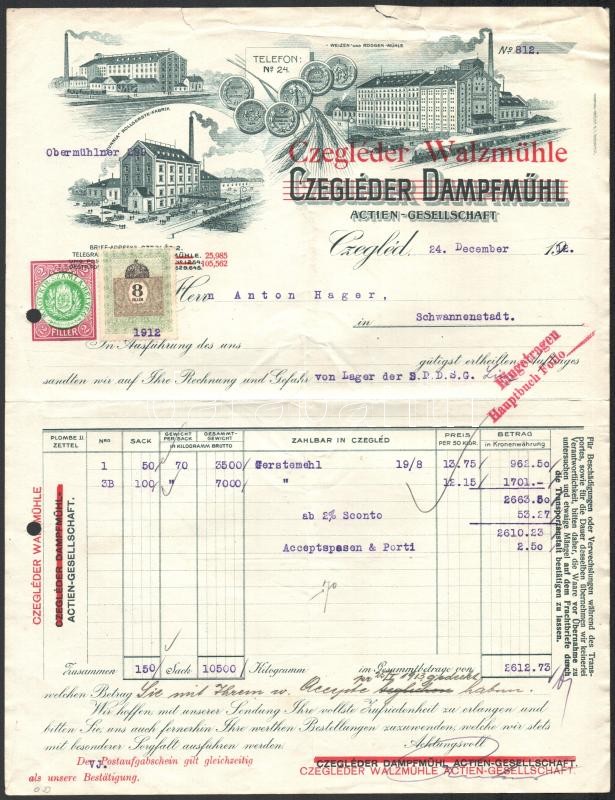 TELEFON:
No 24.
WEIZEN- UND ROGGEN-MÜHLE
No 812.
ROLLGERSTE-FABRIK
Obermühlner
Czegleder Walzmühle
CZEGLÉDER DAMPFMÜHL
ACTIEN-GESELLSCHAFT
25,985
105,562
Czegléd, 24. December 1912.
2 FILLER
8 FILLER
1912
Herrn Anton Hager,
in Schwannenstadt.
In Ausführung des uns gütigst ertheilten Auftrages
sandten wir auf Ihre Rechnung und Gefahr von Lager der S.P.D.S.G.
Eingetragen
Hauptbuch Folio
PLOMBE u. ZETTEL Nro SACK GEWICHT PER/SACK GESAMMT-GEWICHT IN KILOGRAMM BRUTTO ZAHLBAR IN CZEGLÉD PREIS PER 50 KIGR. BETRAG in Kronenwährung
1 50 70 3500 Gerstemehl 19/8 13.75 962.50
3B 100 " 7000 " 12.15 1701.-
2663.50
ab 2% Sconto 53.27
2610.23
Acceptspesen & Porti 2.50
Zusammen 150 Sack 10500 Kilogramm im Gesammtbetrage von 2612.73
welchen Betrag Sie mit Ihrem w. Accepte beglichen haben.
Wir hoffen mit unserer Sendung Ihre vollste Zufriedenheit zu erlangen und
bitten Sie, uns auch fernerhin Ihre werthen Bestellungen zuzuwenden, welche wir stets
mit besonderer Sorgfalt ausführen werden. Achtungsvoll
Der Postaufgabschein gilt gleichzeitig
als unsere Bestätigung.
VJ.
CZEGLÉDER DAMPFMÜHL ACTIEN-GESELLSCHAFT.
CZEGLÉDER WALZMÜHLE ACTIEN-GESELLSCHAFT.
CZEGLÉDER WALZMÜHLE
CZEGLÉDER DAMPFMÜHL-
ACTIEN-GESELLSCHAFT.
Für Beschädigungen oder Verwechslungen während des Trans-
portes, sowie für die Dauer desselben übernehmen wir keinerlei
Verantwortlichkeit, bitten daher, die Waare vor Übernahme zu
untersuchen und etwaige Mängel auf dem Frachtbriefe durch
die Transportanstalt bestätigen zu lassen.